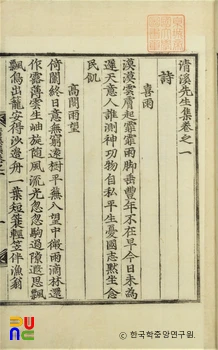 清溪先生集卷之一
詩
喜雨
漠漠雲膚起霏霏雨脚垂豊年不在早今日未爲
遲天意人誰測神功物自私平生憂國志黙坐念
民飢
高閣雨望
倚闌終日意無窮遠樹平蕪入望中微雨滴林還
作霧薄雲生岫旋隨風流光忽忽駒過隙遐思飄
飄鳥出籠安得沙邊舟一葉短簑輕笠伴漁翁
ⓒ 한국학중앙연구원